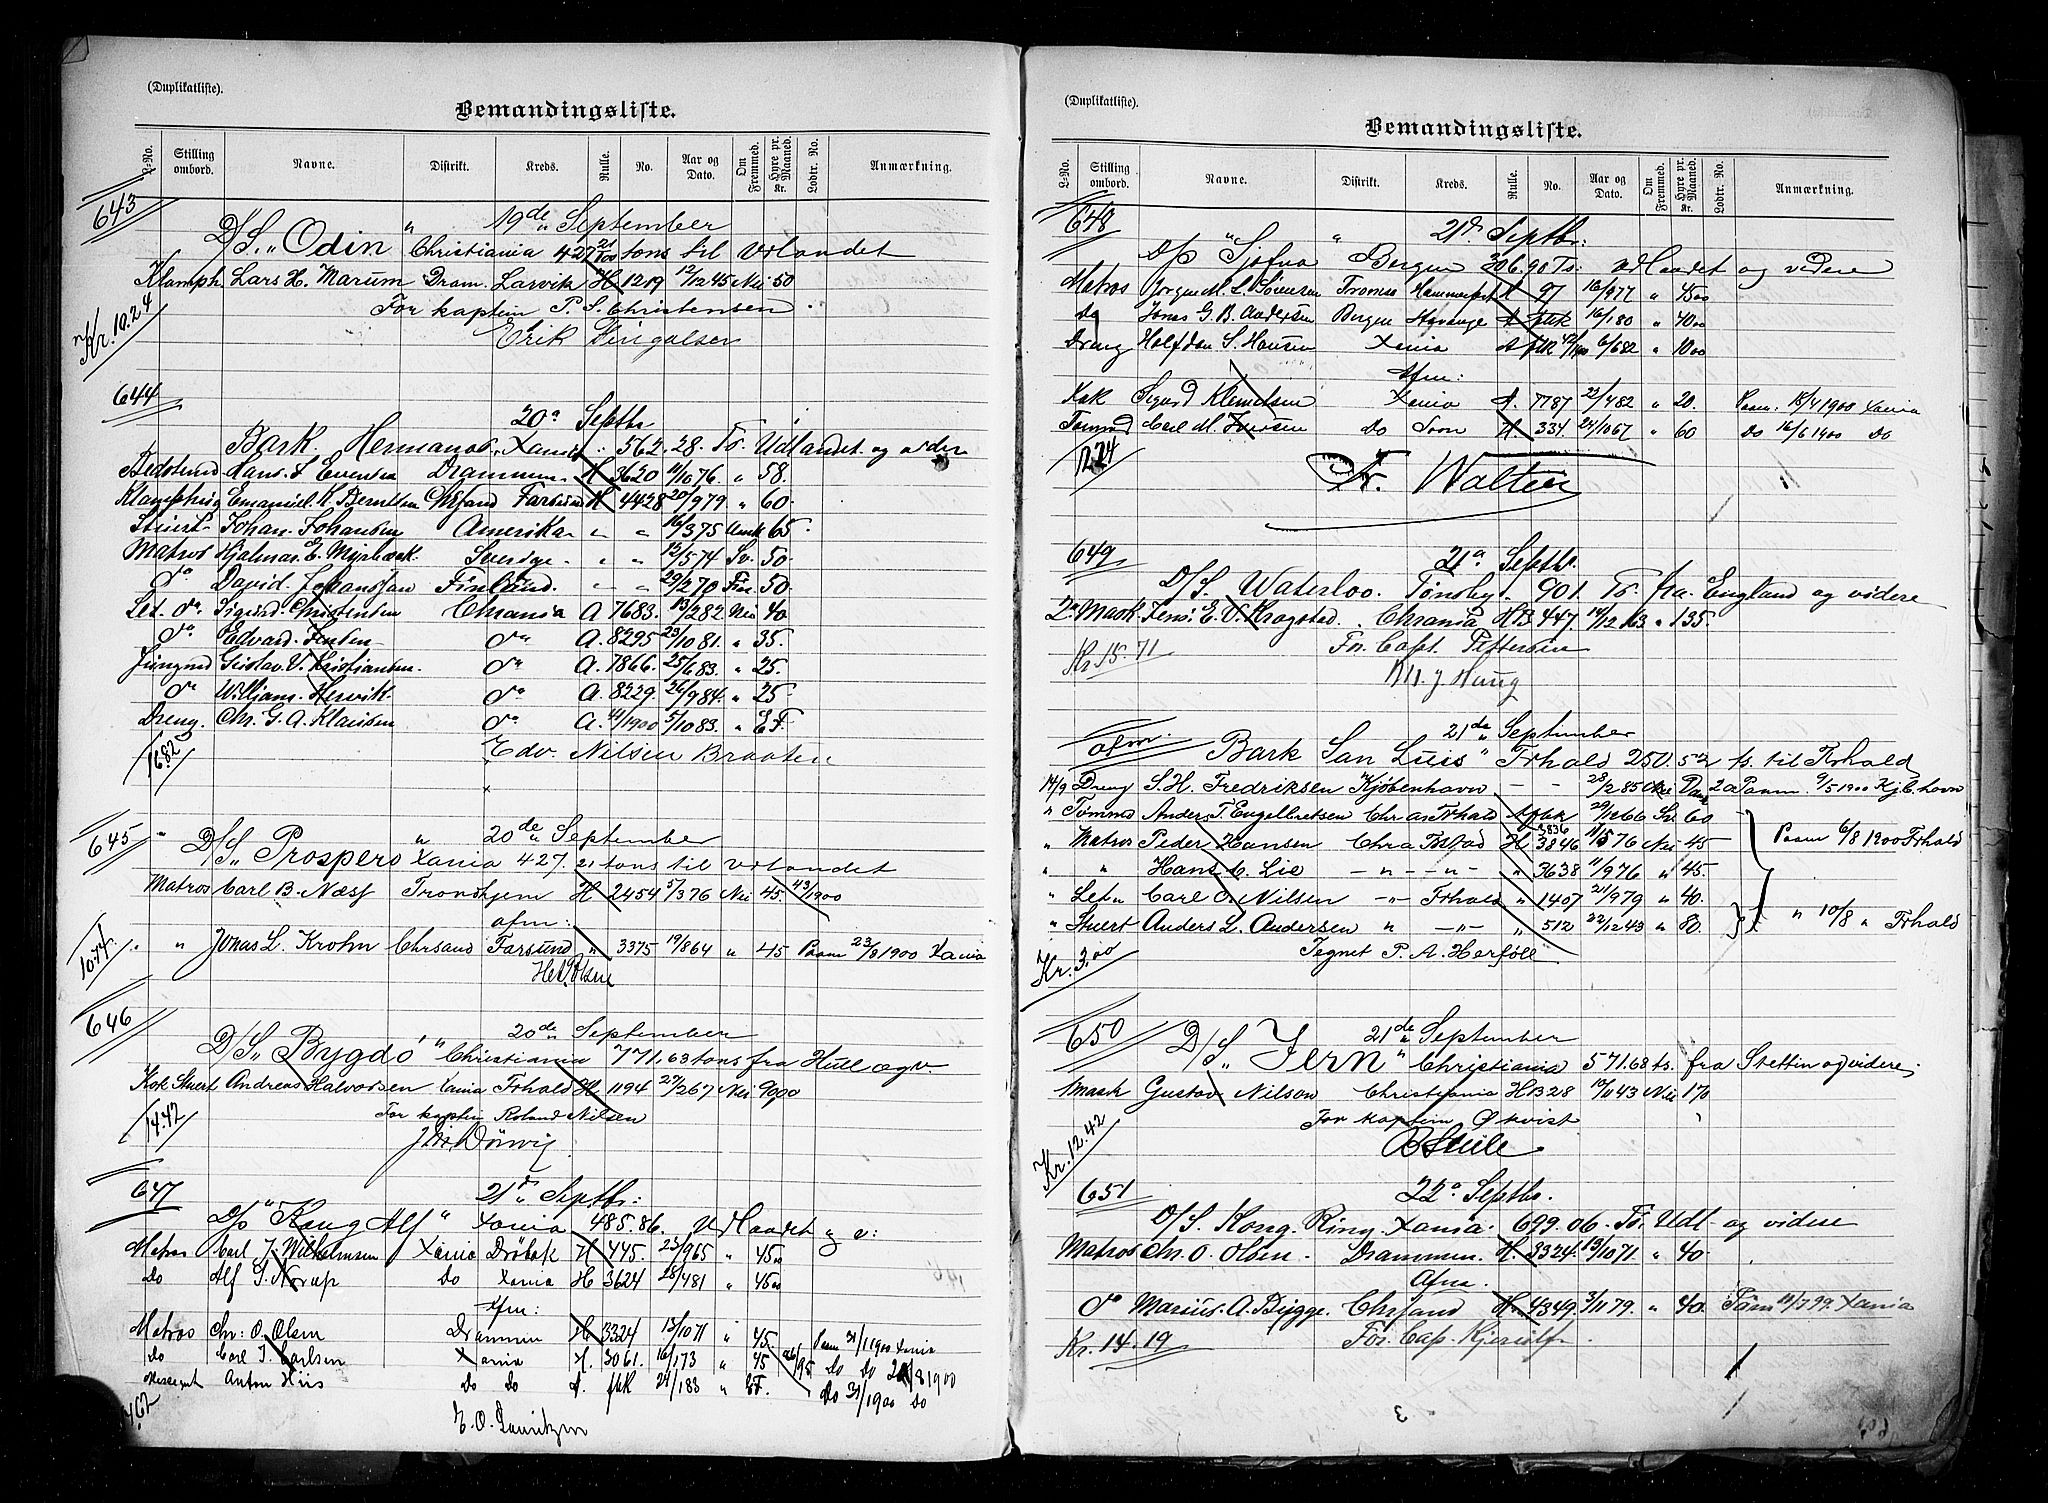 (Duplikatliste).
Bemandingsliste.
L-No. Stilling ombord. Navne. Distrikt. Kreds. Rulle. No. Aar og Dato. Om Fremmed. Hyre pr. Maaned. Kr. Lodtr. No. Anmærkning.
643 19de September
D/S. "Odin" Christiania 427 21/100 tons til Udlandet
Lars H. Marum Dram. Larvik H 1219 12/12 45 Nei 50
For kaptein P. S. Christensen
Erik Fingalsen
Kr. 10.24
644
20a Septbr
Bark. Hermanos. Xania: 562.28. Ts. Udlandet og videre
Hans. L. Evensen Drammen. H 3620 11/10 76. " 58.
Emanuel. K. Berntsen Chrsand Farsund H 4428 20/9 79 " 60.
Stuert. Johan. Johansen Amerika " " 16/3 75 Amk 65.
Matros Hjalmar. E. Myrbæck. Sverige. " " 12/5 74 Sv. 50.
do David. Johansson Finland. " " 29/2 70 Fin. 50.
Let. do. Sigurd. Christensen Chrania A 7683. 13/2 82 Nei 40
do Edvard. Jensen do A. 8295 23/10 81. " 35.
Jungmd Gustav. V. Kristiansen. do A. 7866. 25/6 83. " 25.
do Willjam. Hervik. do A. 8229. 26/9 84. " 25.
Dreng. Chr. G. A. Klausen do A. 19/1900 5/10 83. " E F.
Edv. Nilsen Braaten
16.82
645 " 20de September
D/S "Prospero" Xania 427. 21 tons til Udlandet
Matros Carl B. Næss Trondhjem H 2454 5/3 76 Nei 45. 43/1900
afm:
" Jonas L. Krohn Chrsand Farsund " 3375 19/8 64 " 45 Paam 23/8 1900 Xania
10.74
646
20de September
D/S "Bygdø" Christiania 771.63 tons fra Hull og v.
Kok Stuert Andreas Halvorsen Xania Frhald H. 1194 27/2 67 Nei 9000
For kaptein Roland Nilsen
14.42
647 21de Septbr:
D/S "Kong Alf" Xania 485.86. Udlandet
Matros Carl J. Wilhelmsen Xania Drøbak H 445. 23/9 65 " 4500
Do Alf S. Norup Do Xania H 3624 28/4 81 " 4500
Afm:
Matros Chr: O. Olsen Drammen H 3324 13/10 71 " 45. Paam 31/1 1900 Xania
Do Carl J. Carlsen Xania H. 3061. 16/1 73 " 45 Do Do 20/8 1900
Anton Hiis Do Do A. fbk 21/1 83 " EF. Do 31/1900 Do
E. O. Lauritzen
(Duplikatliste).
Bemandingsliste.
L-No. Stilling ombord. Navne. Distrikt. Kreds. Rulle. No. Aar og Dato. Om Fremmed. Hyre pr. Maaned. Kr. Lodtr. No. Anmærkning.
648 21de Septbr:
D/S "Sjofna" Bergen 306.90 Ts: Udlandet og videre
Matros Jørgen M. L. Sørensen Tromsø Hammerfest H 97 16/9 77 " 4500
Do Jonas G. B. Andersen Bergen A Afbk 16/1 80 " 4000
Dreng Halfdan S. Hansen Xania A Afbk 6/6 82 " 1000
Afm:
Kok Sigurd Klemetsen Xania A. 7787 22/4 82 " 20. Paam. 18/4 1900 Xania
Tømmd Carl M. Do Soon H. 334. 24/10 67 " 60 Do 16/6 1900 Do
12.24
Fr. Walter
649 21a Septbr.
D/S. Waterloo. Tønsbg. 901. Ts. fra England og videre
2 Mask. Jens. E. O. Kragstad. Chrania HB 447. 14/12 63 " 135.
For. Capt. Pettersen
Kr. 15.71
Haug
21de September
afm. Bark San Luis" Frhald 250.52 ts. til Frhald
14/9 Dreng S. H. Fredriksen Kjøbenhavn — — 28/2 85 20 Paam 9/5 1900 Kjbhavn
" Tømmd Anders T. Engelbretsen Chra Frhald Afbk 29/12 66 60
" Matros Peder Hansen Chra H 3836 3846 76 Nei 45 Paam 6/8 1900 Frhald
" " Hans C. Lie —"— —"— " 3638 11/9 76 " 45.
" Let " Carl O. Nilsen —"— Frhald " 1407 21/9 79 " 40.
" Stuert Anders L. Andersen " —"— " 512 22/12 43 " 80. " 10/8 " Frhald
Tegnet P. A. Herføll
Kr. 3.00
650 21de September
D/S "Jern" Christiania 571.68 ts. fra Stettin og videre.
Mask Gustav Nilson Christiania HB 28 12/11 43 Nei 170
For kaptein Økvist
Kr. 12.42
651 22a Septbr.
D/S. Kong. Ring. Xania. 699.06. Ts. Udl. og videre
Matros Chr. O. Olsen. Drammen. H. 3324. 13/10 71. " 40.
Afm.
do Marius. A. Bygge. Chrsand H. 4349. 3/11 79. " 40. Paam 11/7 99. Xania
Kr. 14.19
3